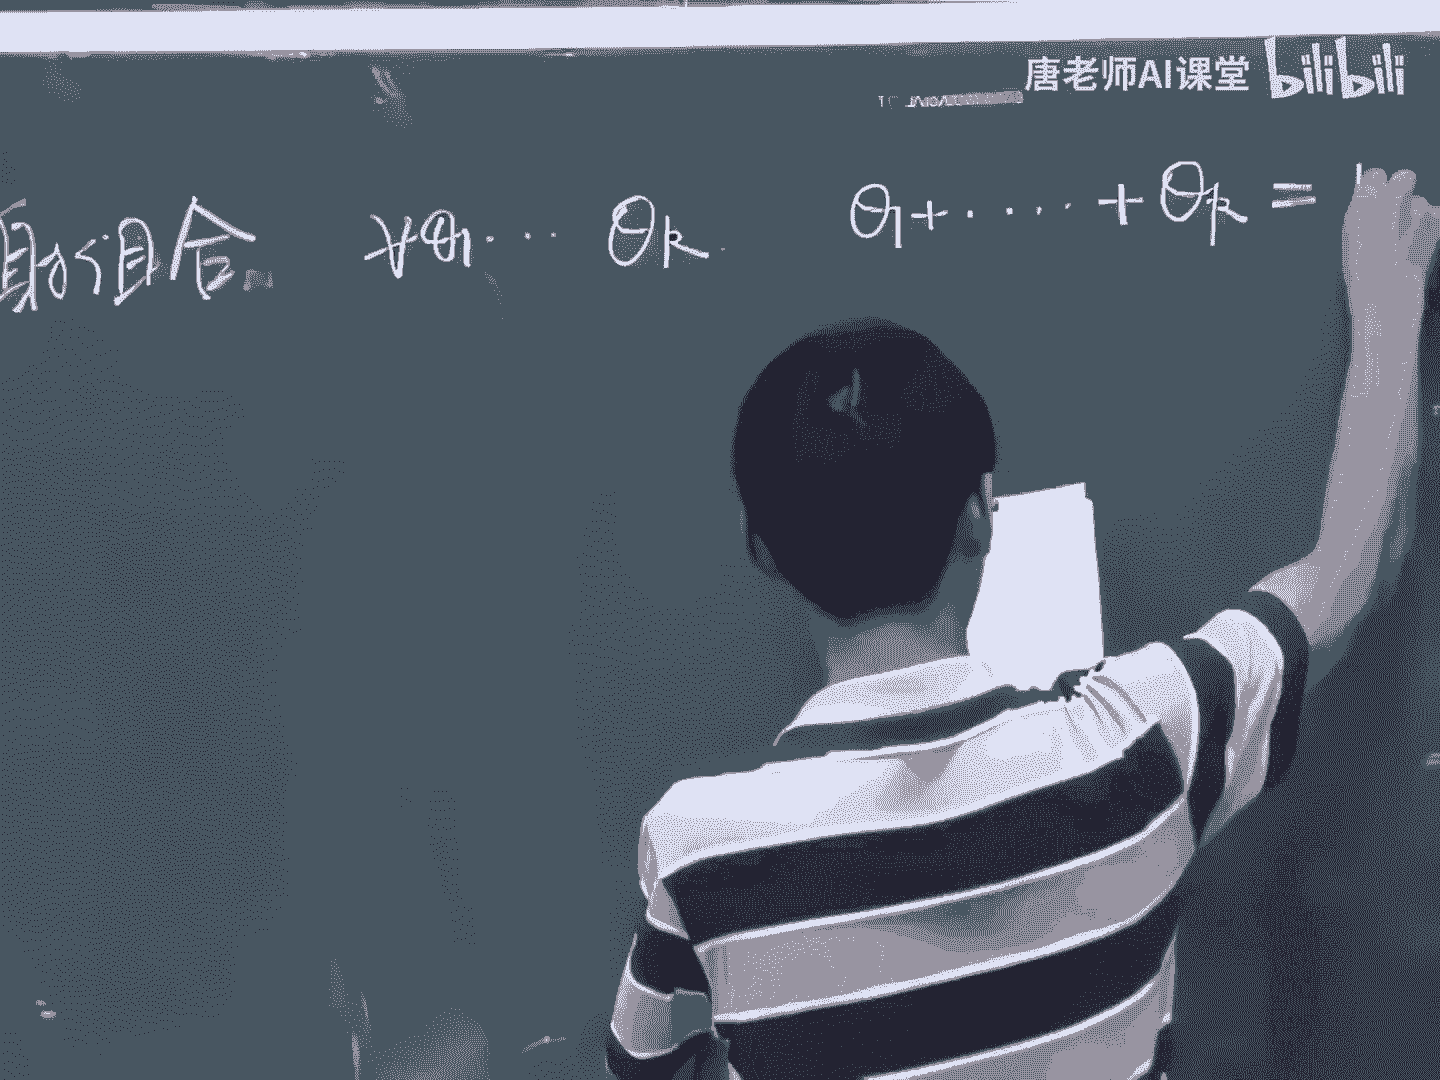 唐老师AI课堂 bilibili
射组合 ∀θ1··· θk. θ1+·····+θk = 1